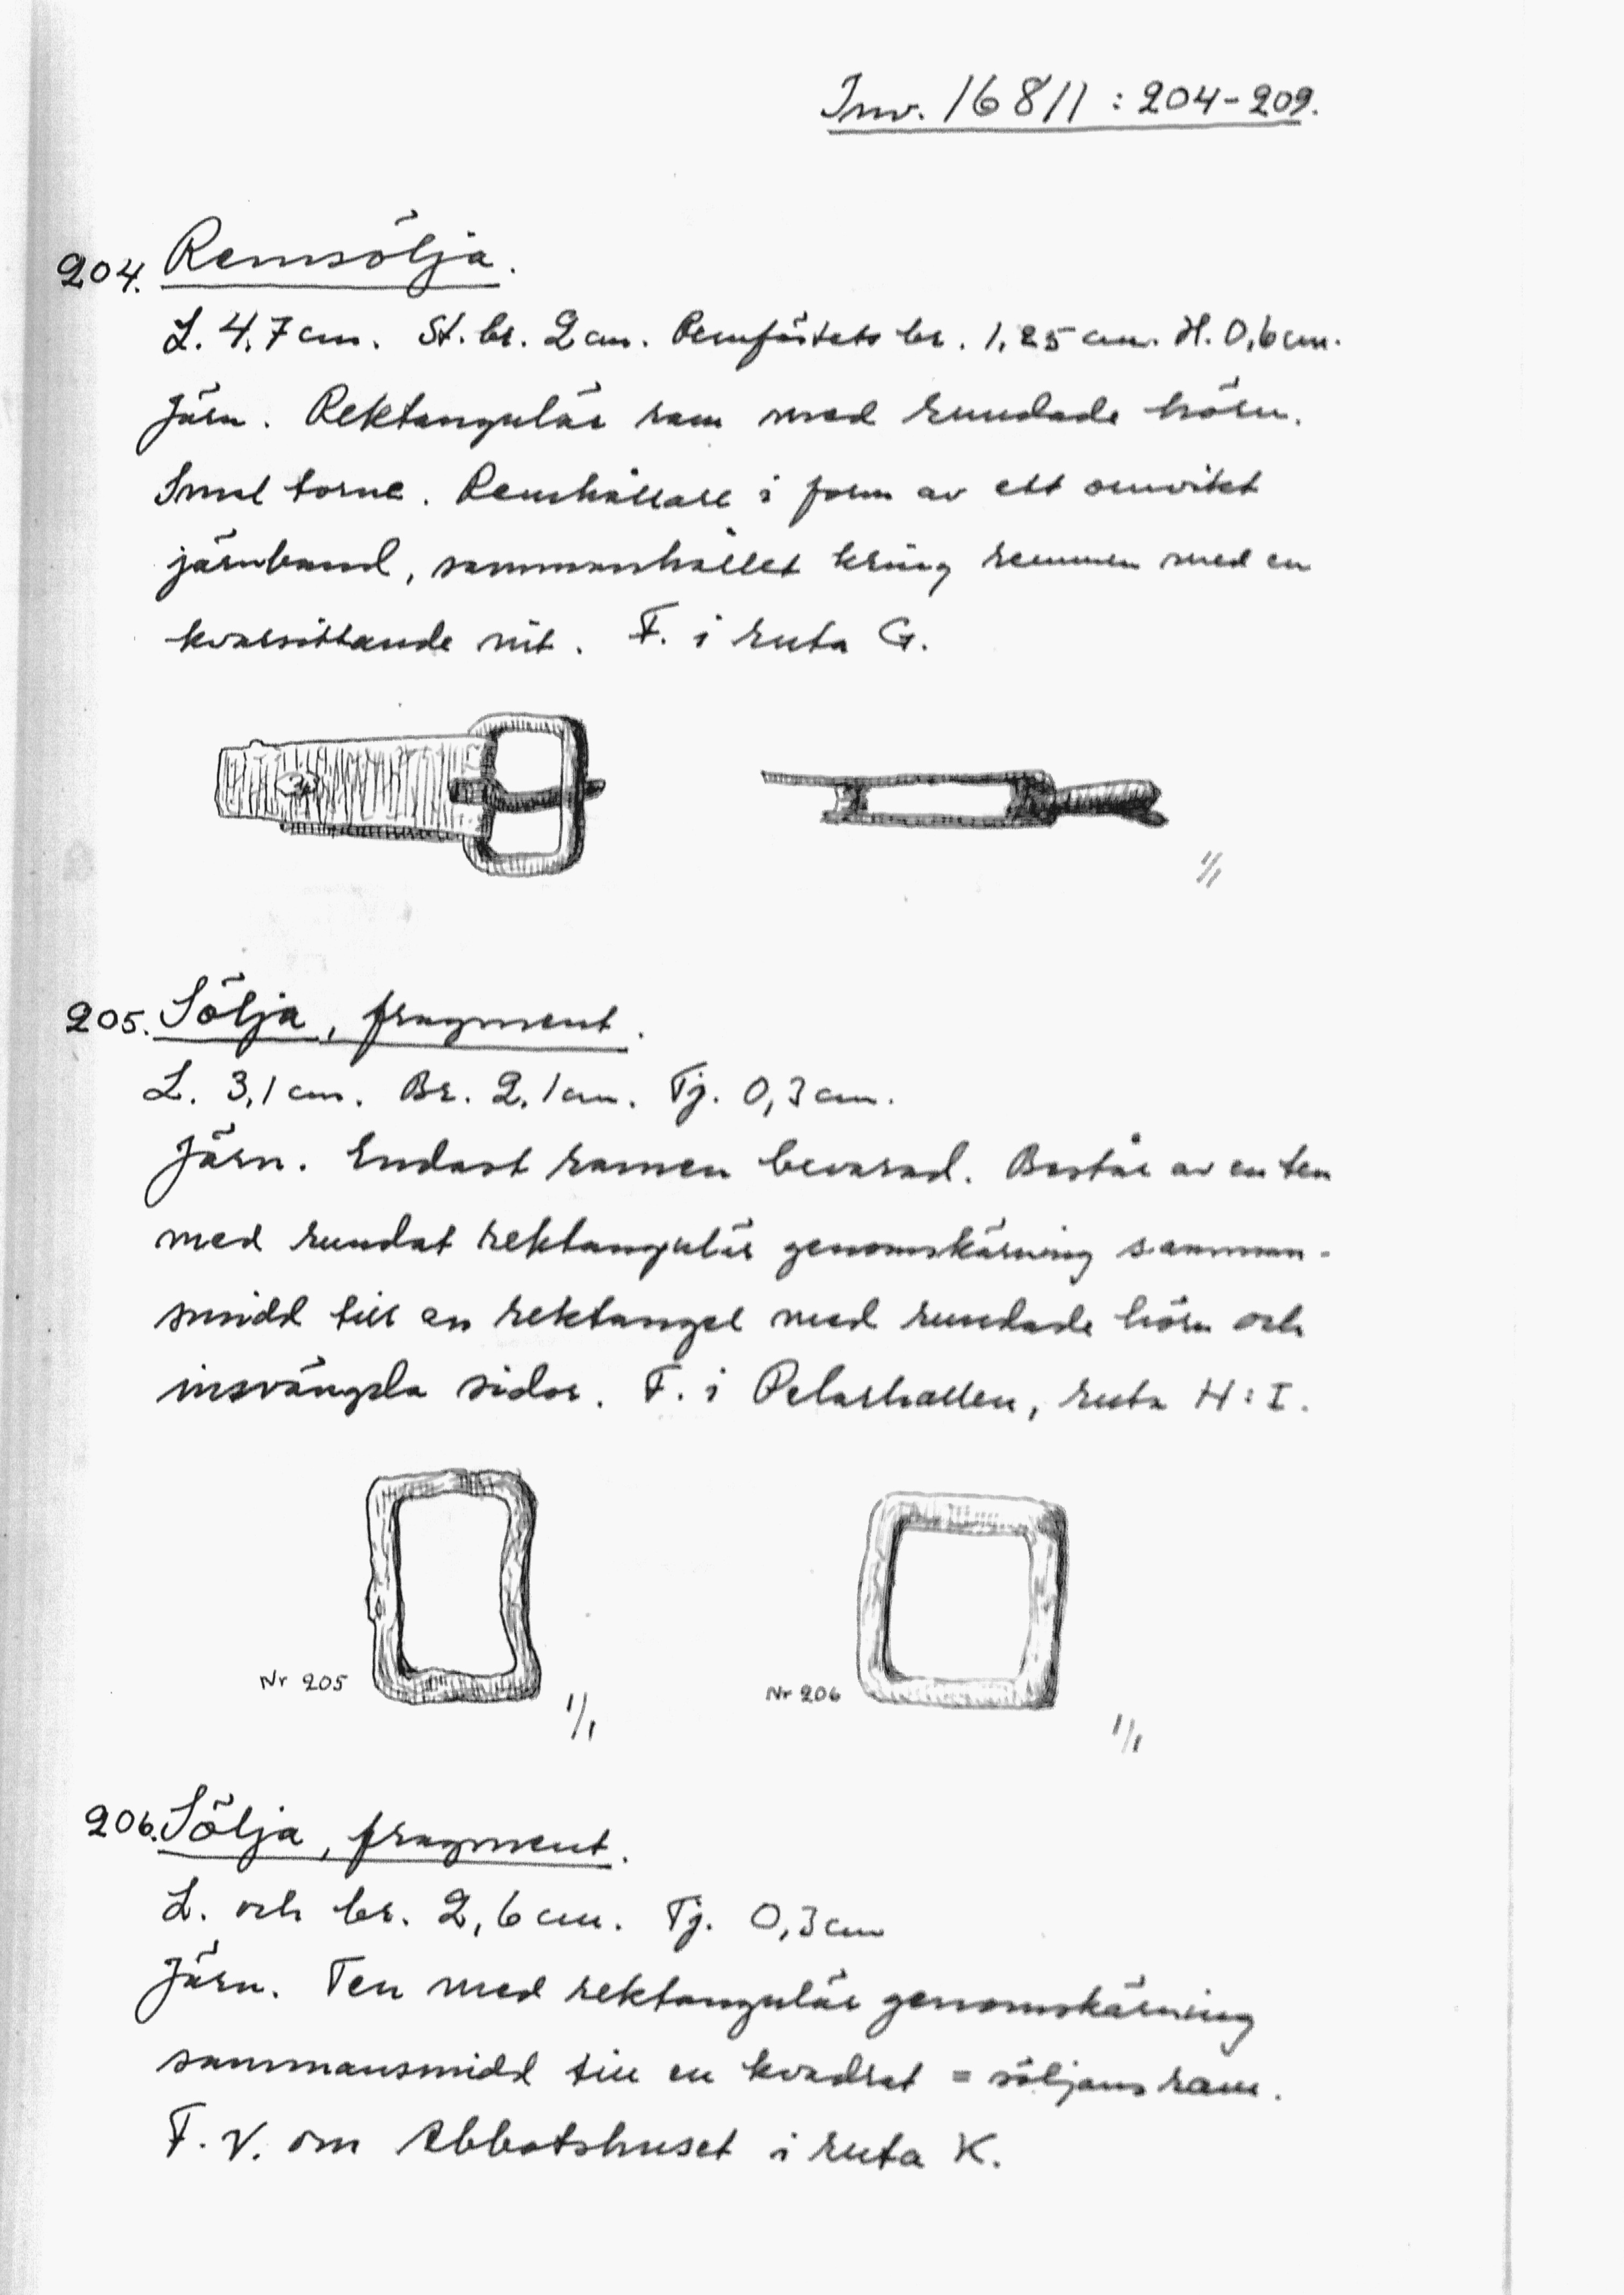 Inv. 16811 : 204-209.
204. Remsölja.
L. 4,7 cm. St. br. 2 cm. Remfästets br. 1,85 cm. H. 0,6 cm.
Järn. Rektangulär ram med rundade hörn.
Smal torne. Remhållare i form av ett omvikt
järnband, sammanhållet kring remmen med en
kvarsittande nit. F. i ruta G.
1/1
205. Sölja, fragment.
L. 3,1 cm. Br. 2,1 cm. Tj. 0,3 cm.
Järn. Endast ramen bevarad. Består av en ten
med rundat rektangulär genomskärning samman-
smidd till en rektangel med rundade hörn och
insvängda sidor. F. i Pelarhallen, ruta H:I.
Nr 205
1/1
Nr 206
1/1
206. Sölja, fragment.
L. och br. 2,6 cm. Tj. 0,3 cm
Järn. Ten med rektangulär genomskärning
sammansmidd till en kvadrat = söljans ram.
F. V. om Abbotshuset i ruta K.